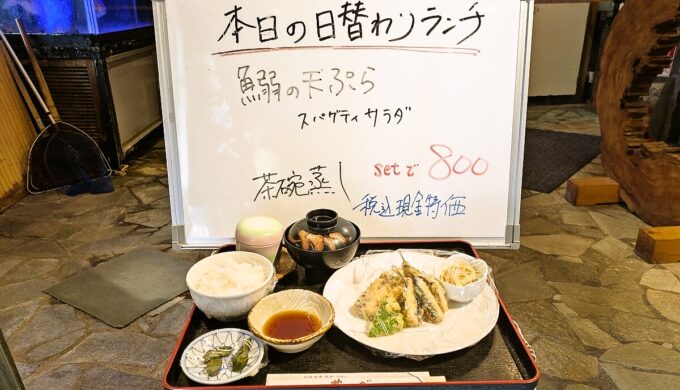 本日の日替わりランチ
鰯の天ぷら
スパゲティサラダ
茶碗蒸し
setで 800
税込現金特価